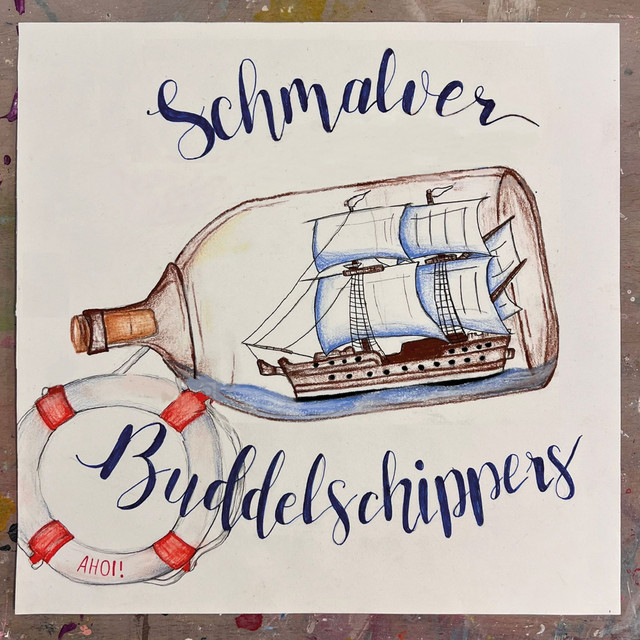 Schmalver
Buddelschippers
AHOI!